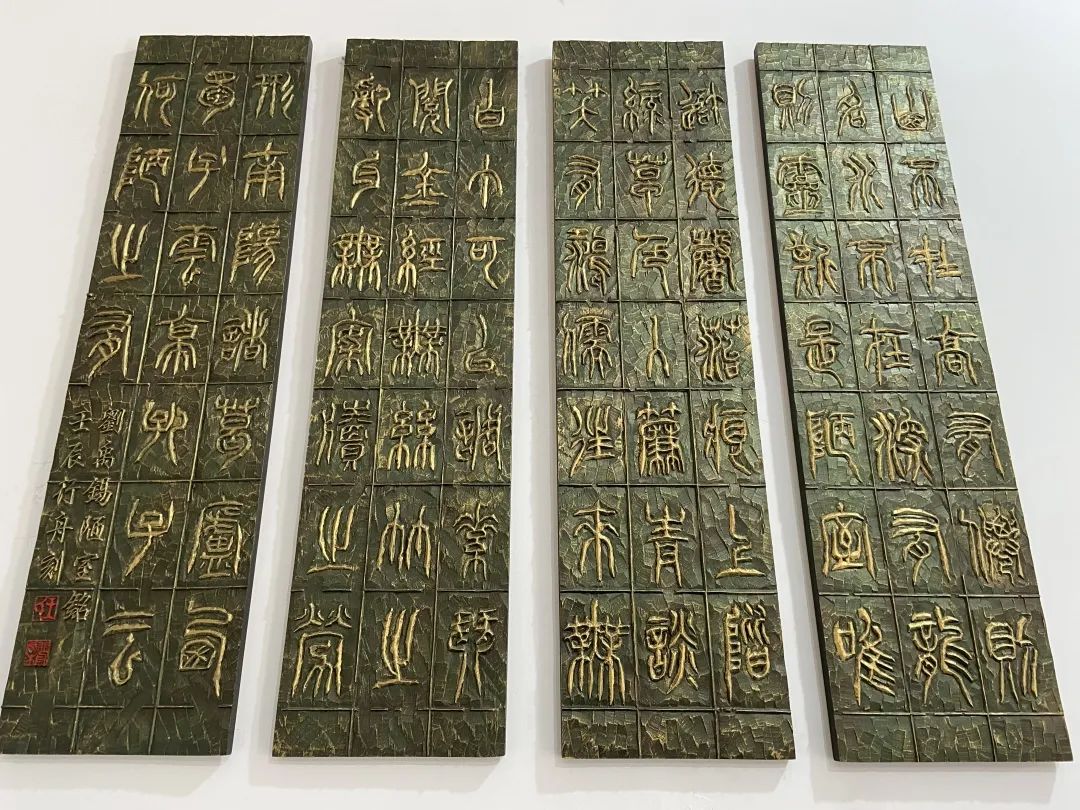 山不在高有僊則
名水不在深有龍
則靈斯是陋室唯
吾德馨苔痕上階
綠草色入簾青談
笑有鴻儒往來無
白丁可以調素琴
閱金經無絲竹之
亂耳無案牘之勞
形南陽諸葛廬西
蜀子雲亭孔子云
何陋之有
劉禹錫陋室銘
壬辰行舟刻